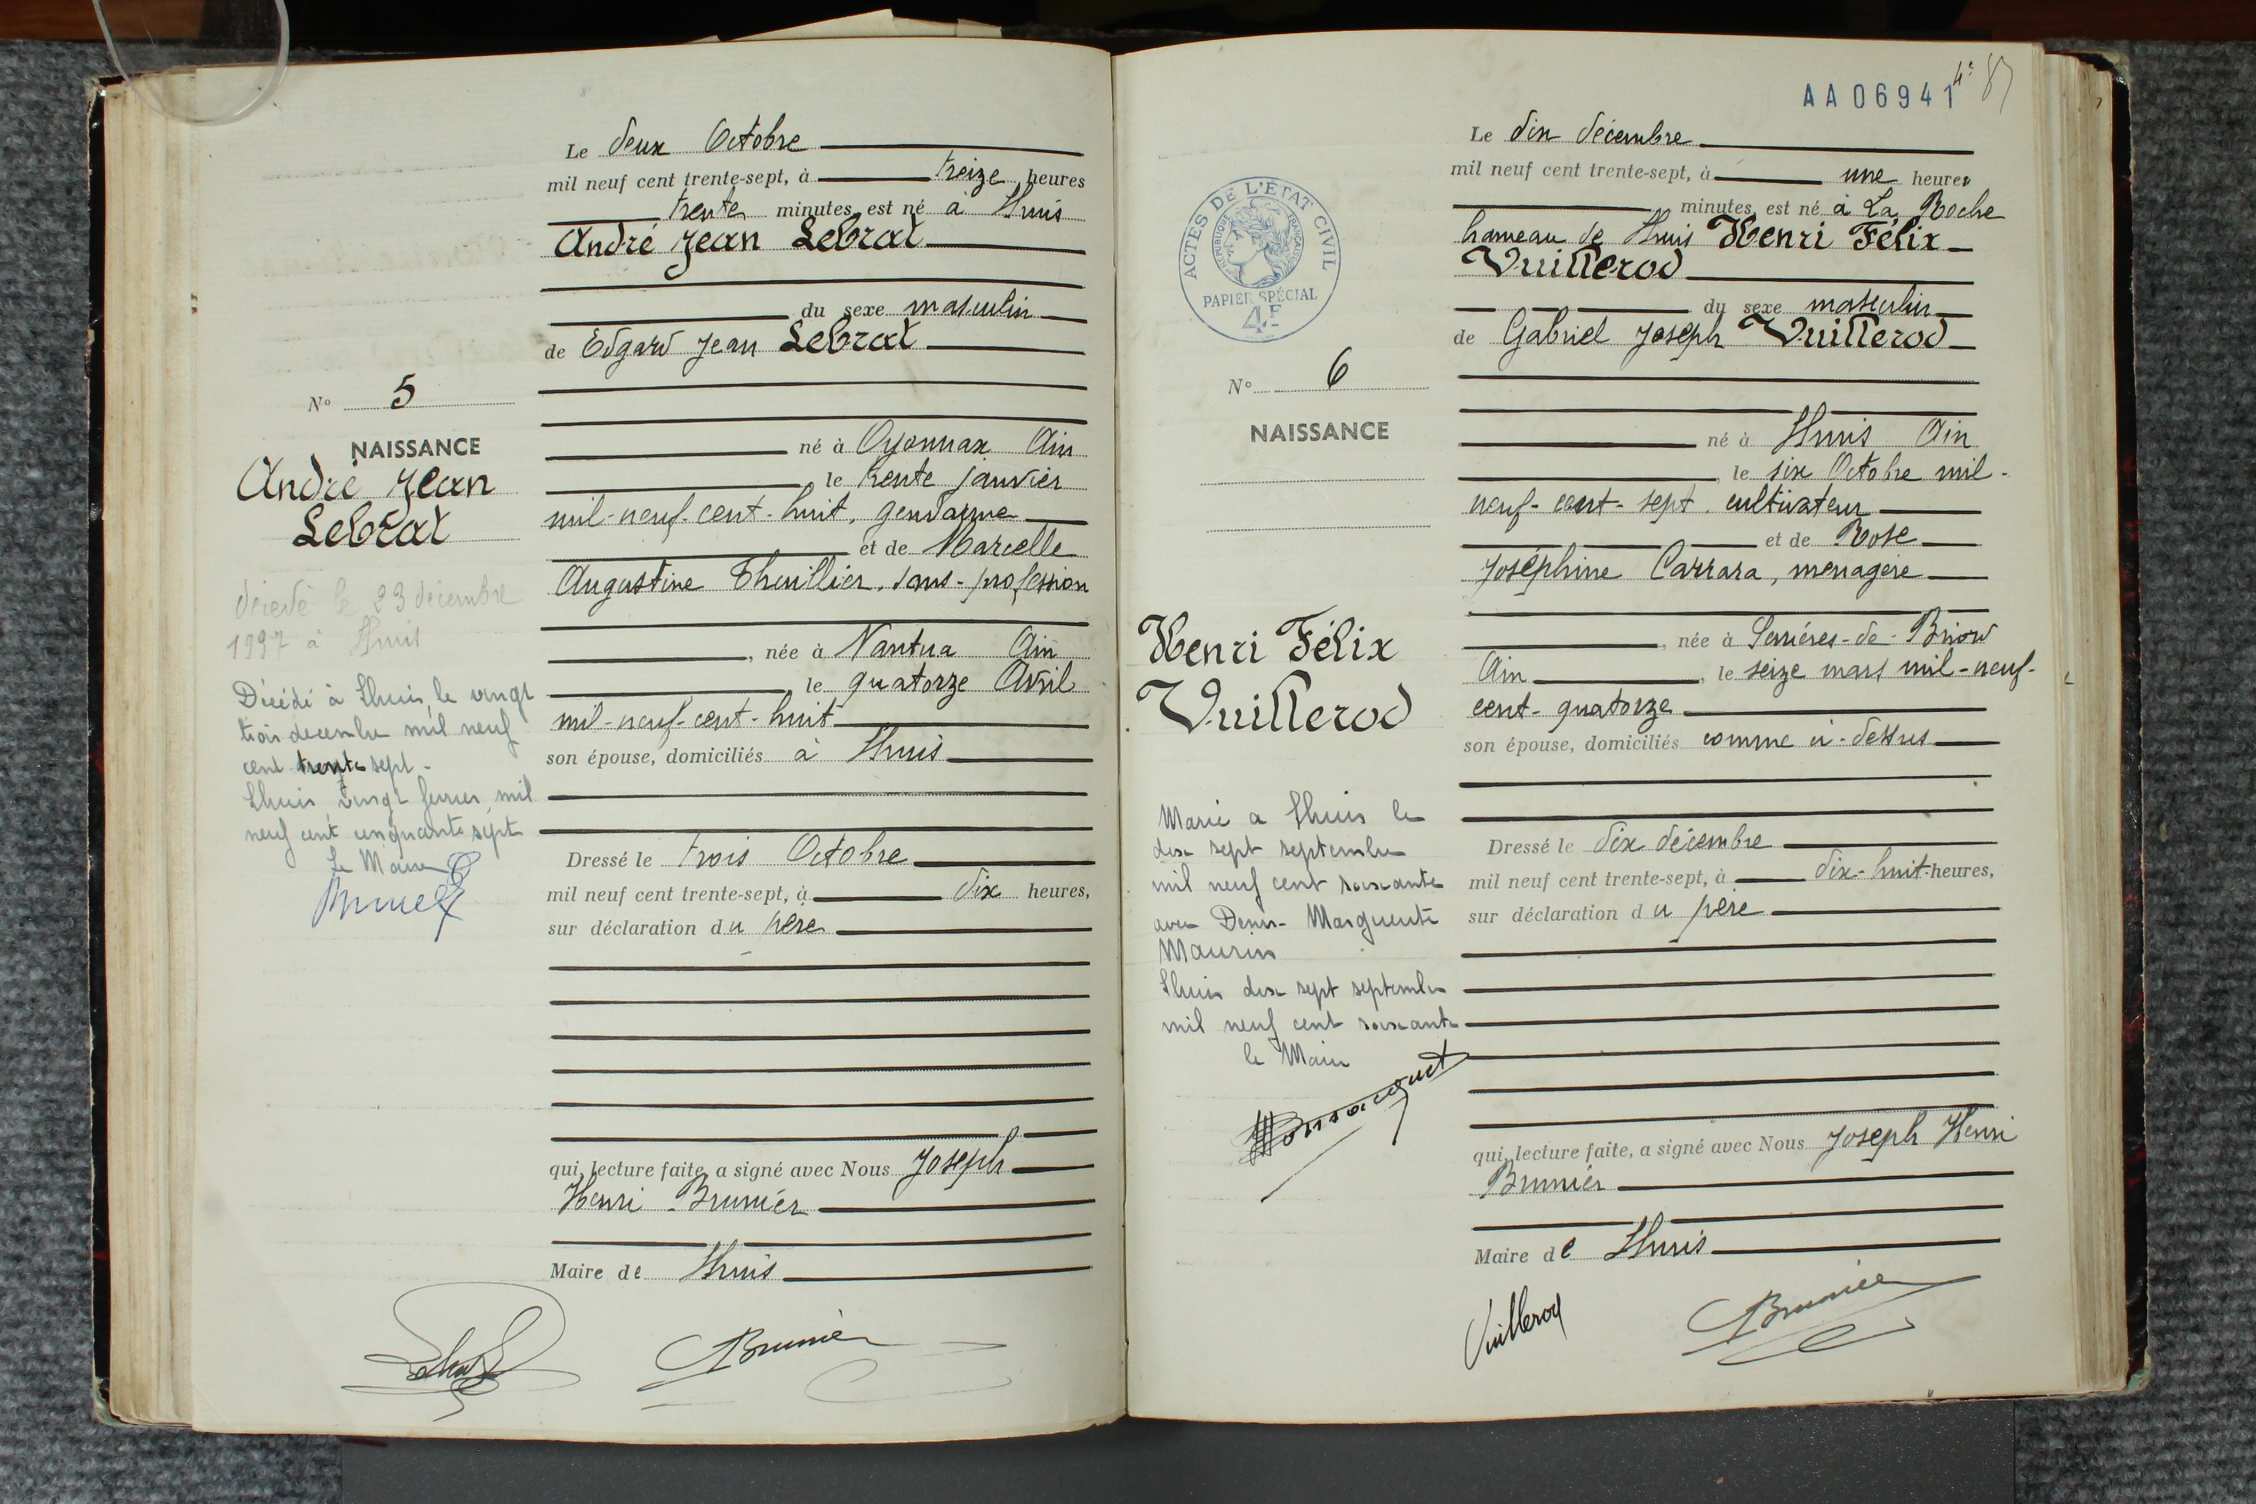 Le deux Octobre
mil neuf cent trente-sept, à treize heures
trente minutes est né à Lhuis
André Jean Lebrat
du sexe masculin
de Edgard Jean Lebrat
né à Oyonnax Ain
le trente janvier
mil-neuf-cent-huit, gendarme
et de Marcelle
Augustine Thuillier, sans-profession
née à Nantua Ain
le quatorze Avril
mil-neuf-cent-huit
son épouse, domiciliés à Lhuis
Dressé le trois Octobre
mil neuf cent trente-sept, à dix heures,
sur déclaration du père
qui, lecture faite, a signé avec Nous Joseph
Henri Brunier
Maire de Lhuis
Brunier
N° 5
NAISSANCE
André Jean
Lebrat
décédé le 23 décembre
1937 à Lhuis
Décédé à Lhuis, le vingt
trois decembre mil neuf
cent trente sept -
Lhuis vingt fevrier mil
neuf cent cinquante sept
Le Maire
AA06941
4e
87
Le dix décembre
mil neuf cent trente-sept, à une heures
minutes est né à La Roche
hameau de Lhuis Henri Félix
Vuillerod
du sexe masculin
de Gabriel Joseph Vuillerod
né à Lhuis Ain
le six Octobre mil-
neuf-cent-sept. cultivateur
et de Rose
Joséphine Carrara, ménagère
née à Serrières-de-Briord
Ain, le seize mars mil-neuf-
cent-quatorze
son épouse, domiciliés comme ci-dessus
Dressé le dix décembre
mil neuf cent trente-sept, à dix-huit heures,
sur déclaration du père
qui, lecture faite, a signé avec Nous Joseph Henri
Brunier
Maire de Lhuis
Vuillerod
Brunier
ACTES DE L'ÉTAT CIVIL
RÉPUBLIQUE FRANÇAISE
PAPIER SPÉCIAL
4F
N° 6
NAISSANCE
Henri Félix
Vuillerod
Marié a Lhuis le
dix sept septembre
mil neuf cent soixante
avec Denise Marguerite
Maurin
Lhuis dix sept septembre
mil neuf cent soixante
le Maire